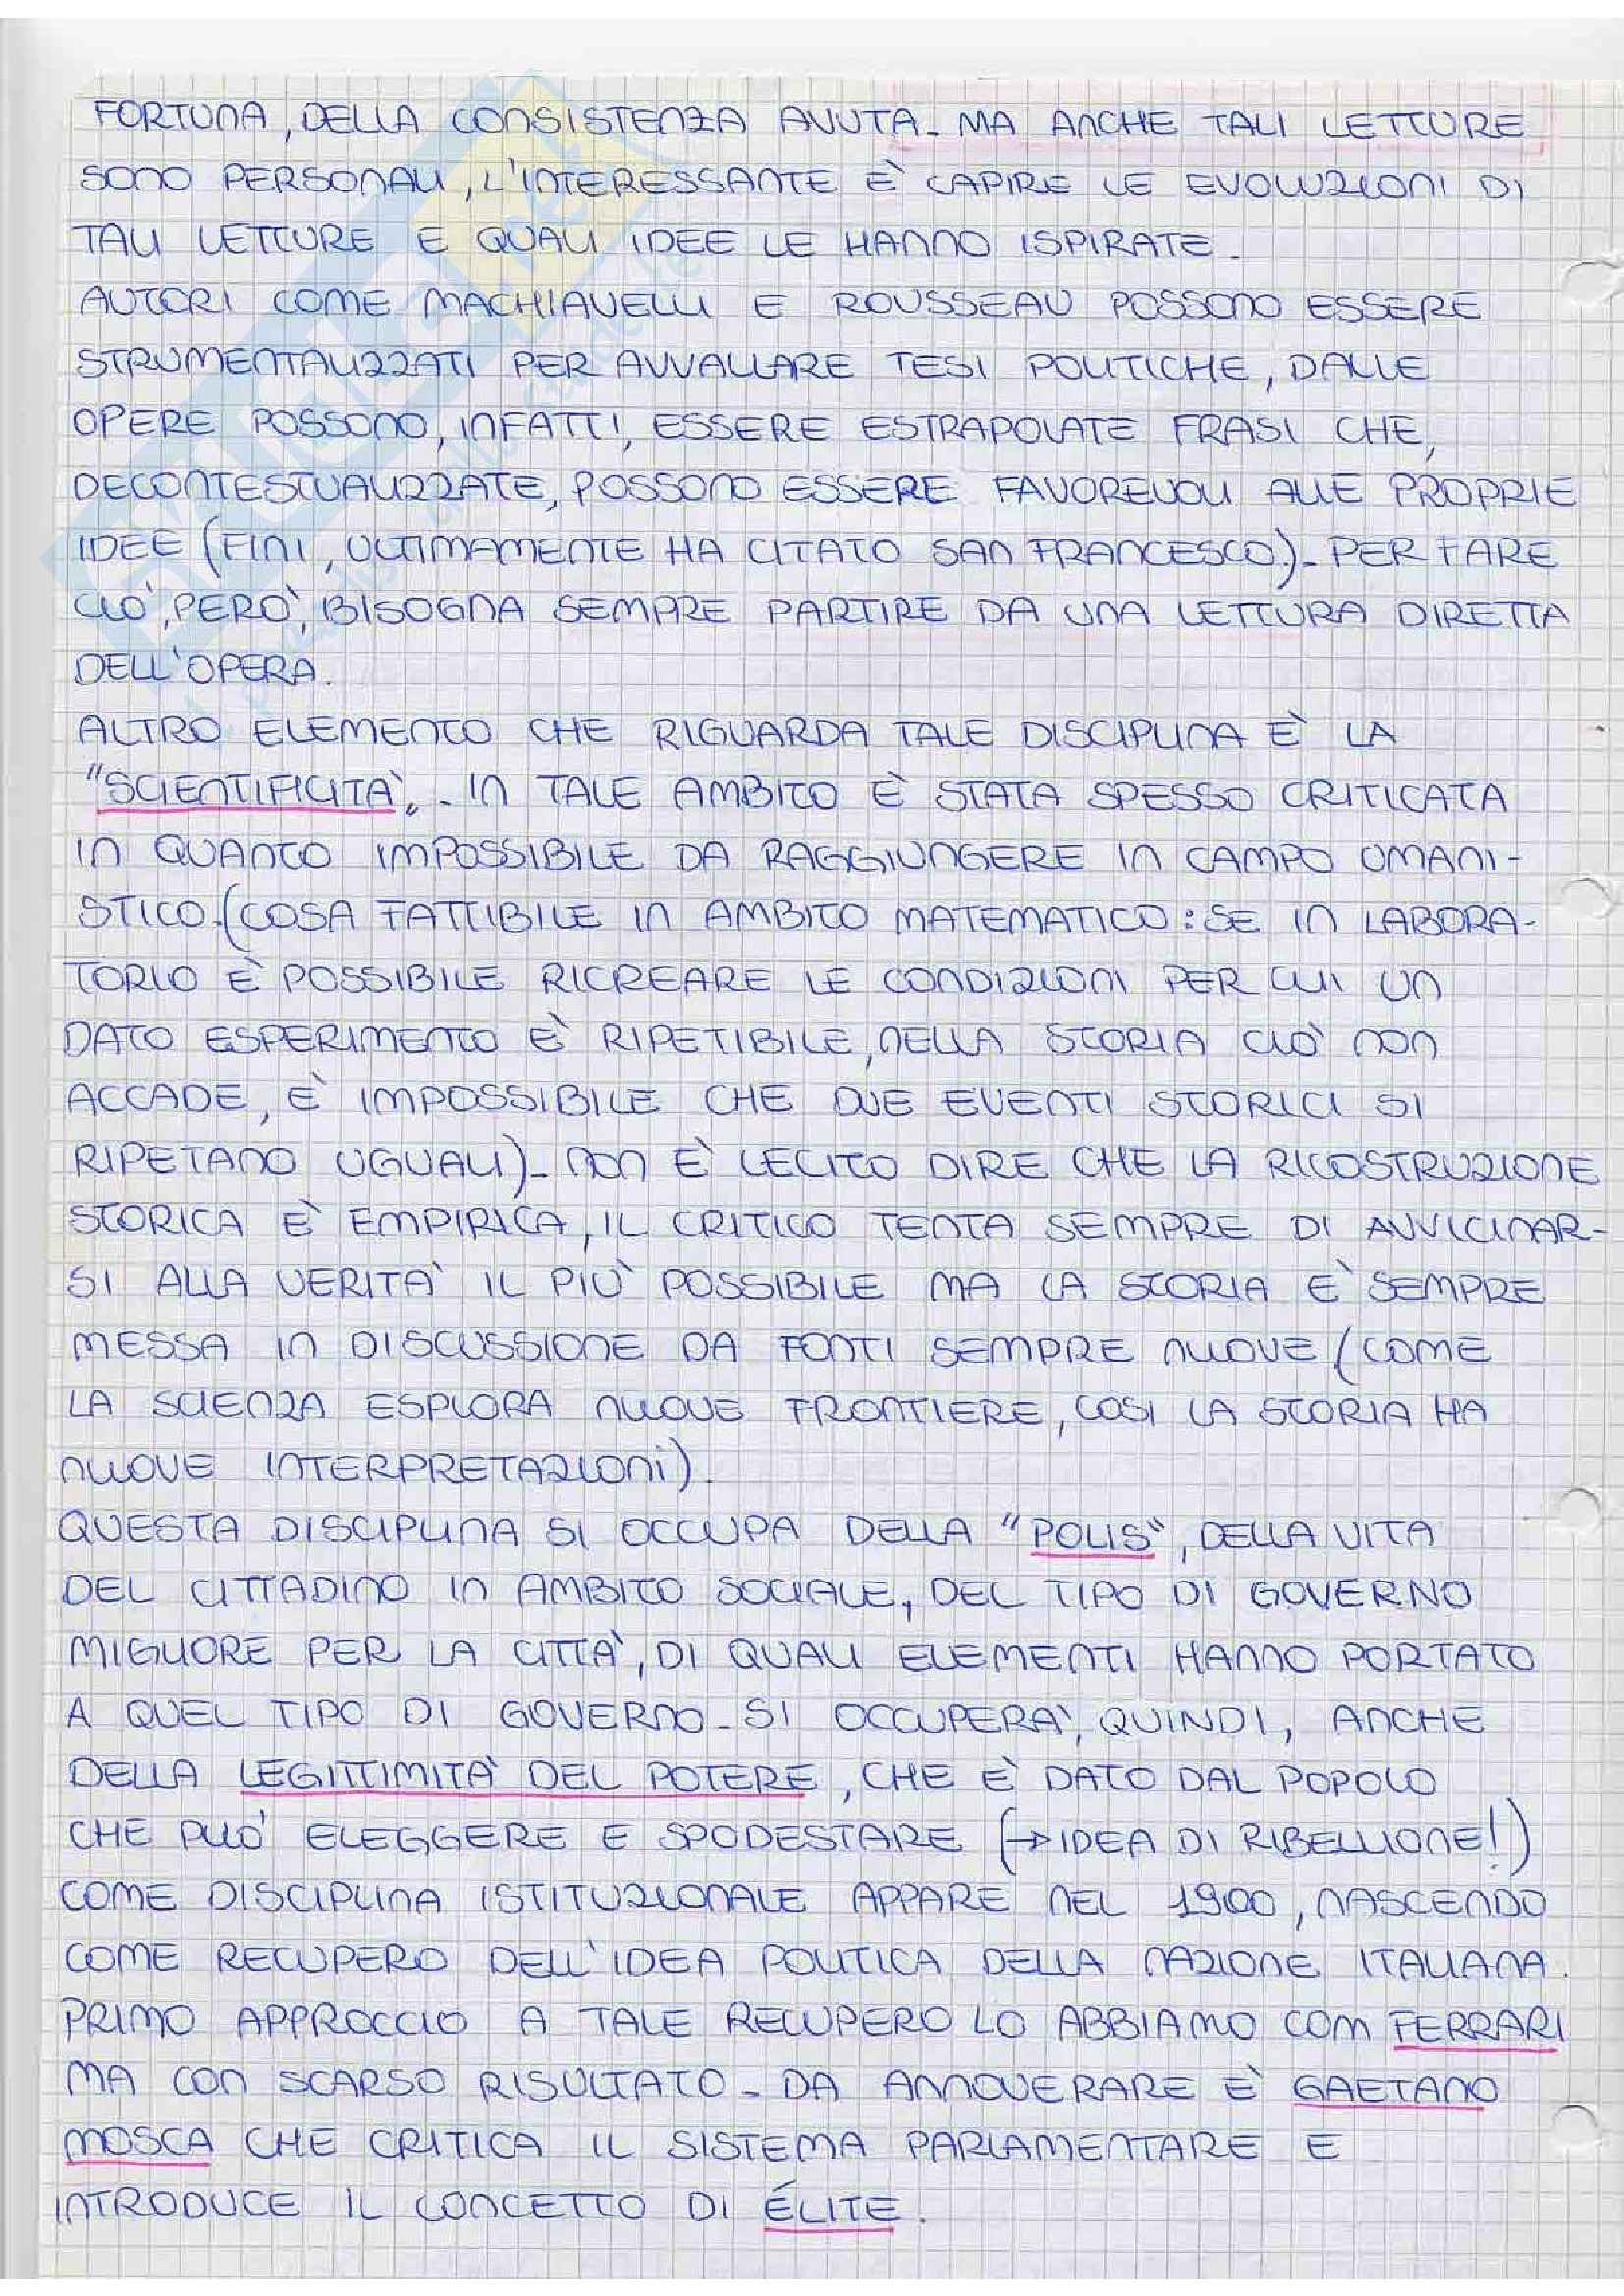 FORTUNA, DELLA CONSISTENZA AVUTA. MA ANCHE TALI LETTURE
SONO PERSONALI, L'INTERESSANTE È CAPIRE LE EVOLUZIONI DI
TALI LETTURE E QUALI IDEE LE HANNO ISPIRATE.
AUTORI COME MACHIAVELLI E ROUSSEAU POSSONO ESSERE
STRUMENTALIZZATI PER AVVALLARE TESI POLITICHE, DALLE
OPERE POSSONO, INFATTI, ESSERE ESTRAPOLATE FRASI CHE,
DECONTESTUALIZZATE, POSSONO ESSERE FAVOREVOLI ALLE PROPRIE
IDEE (FINI, ULTIMAMENTE HA CITATO SAN FRANCESCO). PER FARE
CIÒ, PERÒ, BISOGNA SEMPRE PARTIRE DA UNA LETTURA DIRETTA
DELL'OPERA.
ALTRO ELEMENTO CHE RIGUARDA TALE DISCIPLINA È LA
"SCIENTIFICITÀ". IN TALE AMBITO È STATA SPESSO CRITICATA
IN QUANTO IMPOSSIBILE DA RAGGIUNGERE IN CAMPO UMANI-
STICO. (COSA FATTIBILE IN AMBITO MATEMATICO: SE IN LABORA-
TORIO È POSSIBILE RICREARE LE CONDIZIONI PER CUI UN
DATO ESPERIMENTO È RIPETIBILE, NELLA STORIA CIÒ NON
ACCADE, È IMPOSSIBILE CHE DUE EVENTI STORICI SI
RIPETANO UGUALI). NON È LECITO DIRE CHE LA RICOSTRUZIONE
STORICA È EMPIRICA, IL CRITICO TENTA SEMPRE DI AVVICINAR-
SI ALLA VERITÀ IL PIÙ POSSIBILE MA LA STORIA È SEMPRE
MESSA IN DISCUSSIONE DA FONTI SEMPRE NUOVE (COME
LA SCIENZA ESPLORA NUOVE FRONTIERE, COSÌ LA STORIA HA
NUOVE INTERPRETAZIONI).
QUESTA DISCIPLINA SI OCCUPA DELLA "POLIS", DELLA VITA
DEL CITTADINO IN AMBITO SOCIALE, DEL TIPO DI GOVERNO
MIGLIORE PER LA CITTÀ, DI QUALI ELEMENTI HANNO PORTATO
A QUEL TIPO DI GOVERNO. SI OCCUPERÀ, QUINDI, ANCHE
DELLA LEGITTIMITÀ DEL POTERE, CHE È DATO DAL POPOLO
CHE PUÒ ELEGGERE E SPODESTARE (→ IDEA DI RIBELLIONE!)
COME DISCIPLINA ISTITUZIONALE APPARE NEL 1900, NASCENDO
COME RECUPERO DELL'IDEA POLITICA DELLA NAZIONE ITALIANA.
PRIMO APPROCCIO A TALE RECUPERO LO ABBIAMO COM FERRARI
MA CON SCARSO RISULTATO. DA ANNOVERARE È GAETANO
MOSCA CHE CRITICA IL SISTEMA PARLAMENTARE E
INTRODUCE IL CONCETTO DI ÉLITE.